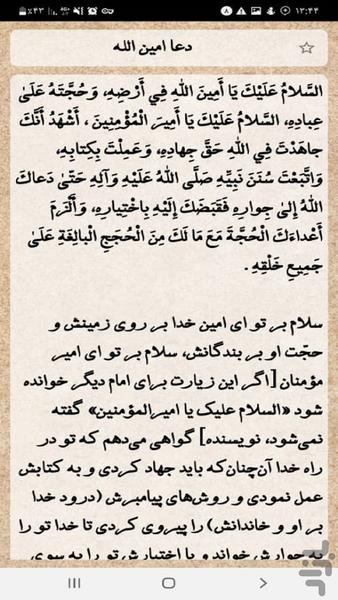 ٪۴۳ ۱۳:۴۴
دعا امین الله
السَّلامُ عَلَیْكَ یَا أَمِینَ اللهِ فِي أَرْضِهِ، وَحُجَّتَهُ عَلَیٰ
عِبادِهِ، السَّلامُ عَلَیْكَ یَا أَمِیرَ الْمُؤْمِنِینَ ، أَشْهَدُ أَنَّكَ
جاهَدْتَ فِي اللهِ حَقَّ جِهادِهِ، وَعَمِلْتَ بِكِتابِهِ،
وَاتَّبَعْتَ سُنَنَ نَبِیِّهِ صَلَّی اللهُ عَلَیْهِ وَآلِهِ حَتّیٰ دَعاكَ
اللهُ إِلیٰ جِوارِهِ فَقَبَضَكَ إِلَیْهِ بِاخْتِیارِهِ، وَأَلْزَمَ
أَعْداءَكَ الْحُجَّةَ مَعَ مَا لَكَ مِنَ الْحُجَجِ الْبالِغَةِ عَلَیٰ
جَمِیعِ خَلْقِهِ .
سلام بر تو ای امین خدا بر روی زمینش و
حجّت او بر بندگانش، سلام بر تو ای امیر
مؤمنان [اگر این زیارت برای امام دیگر خوانده
شود «السلام علیک یا امیرالمؤمنین» گفته
نمی‌شود، نویسنده] گواهی می‌دهم که تو در
راه خدا آن‌چنان‌که باید جهاد کردی و به کتابش
عمل نمودی و روش‌های پیامبرش (درود خدا
بر او و خاندانش) را پیروی کردی تا خدا تو را
به جوارش خواند و با اختیارش تو را به سوی
بازار